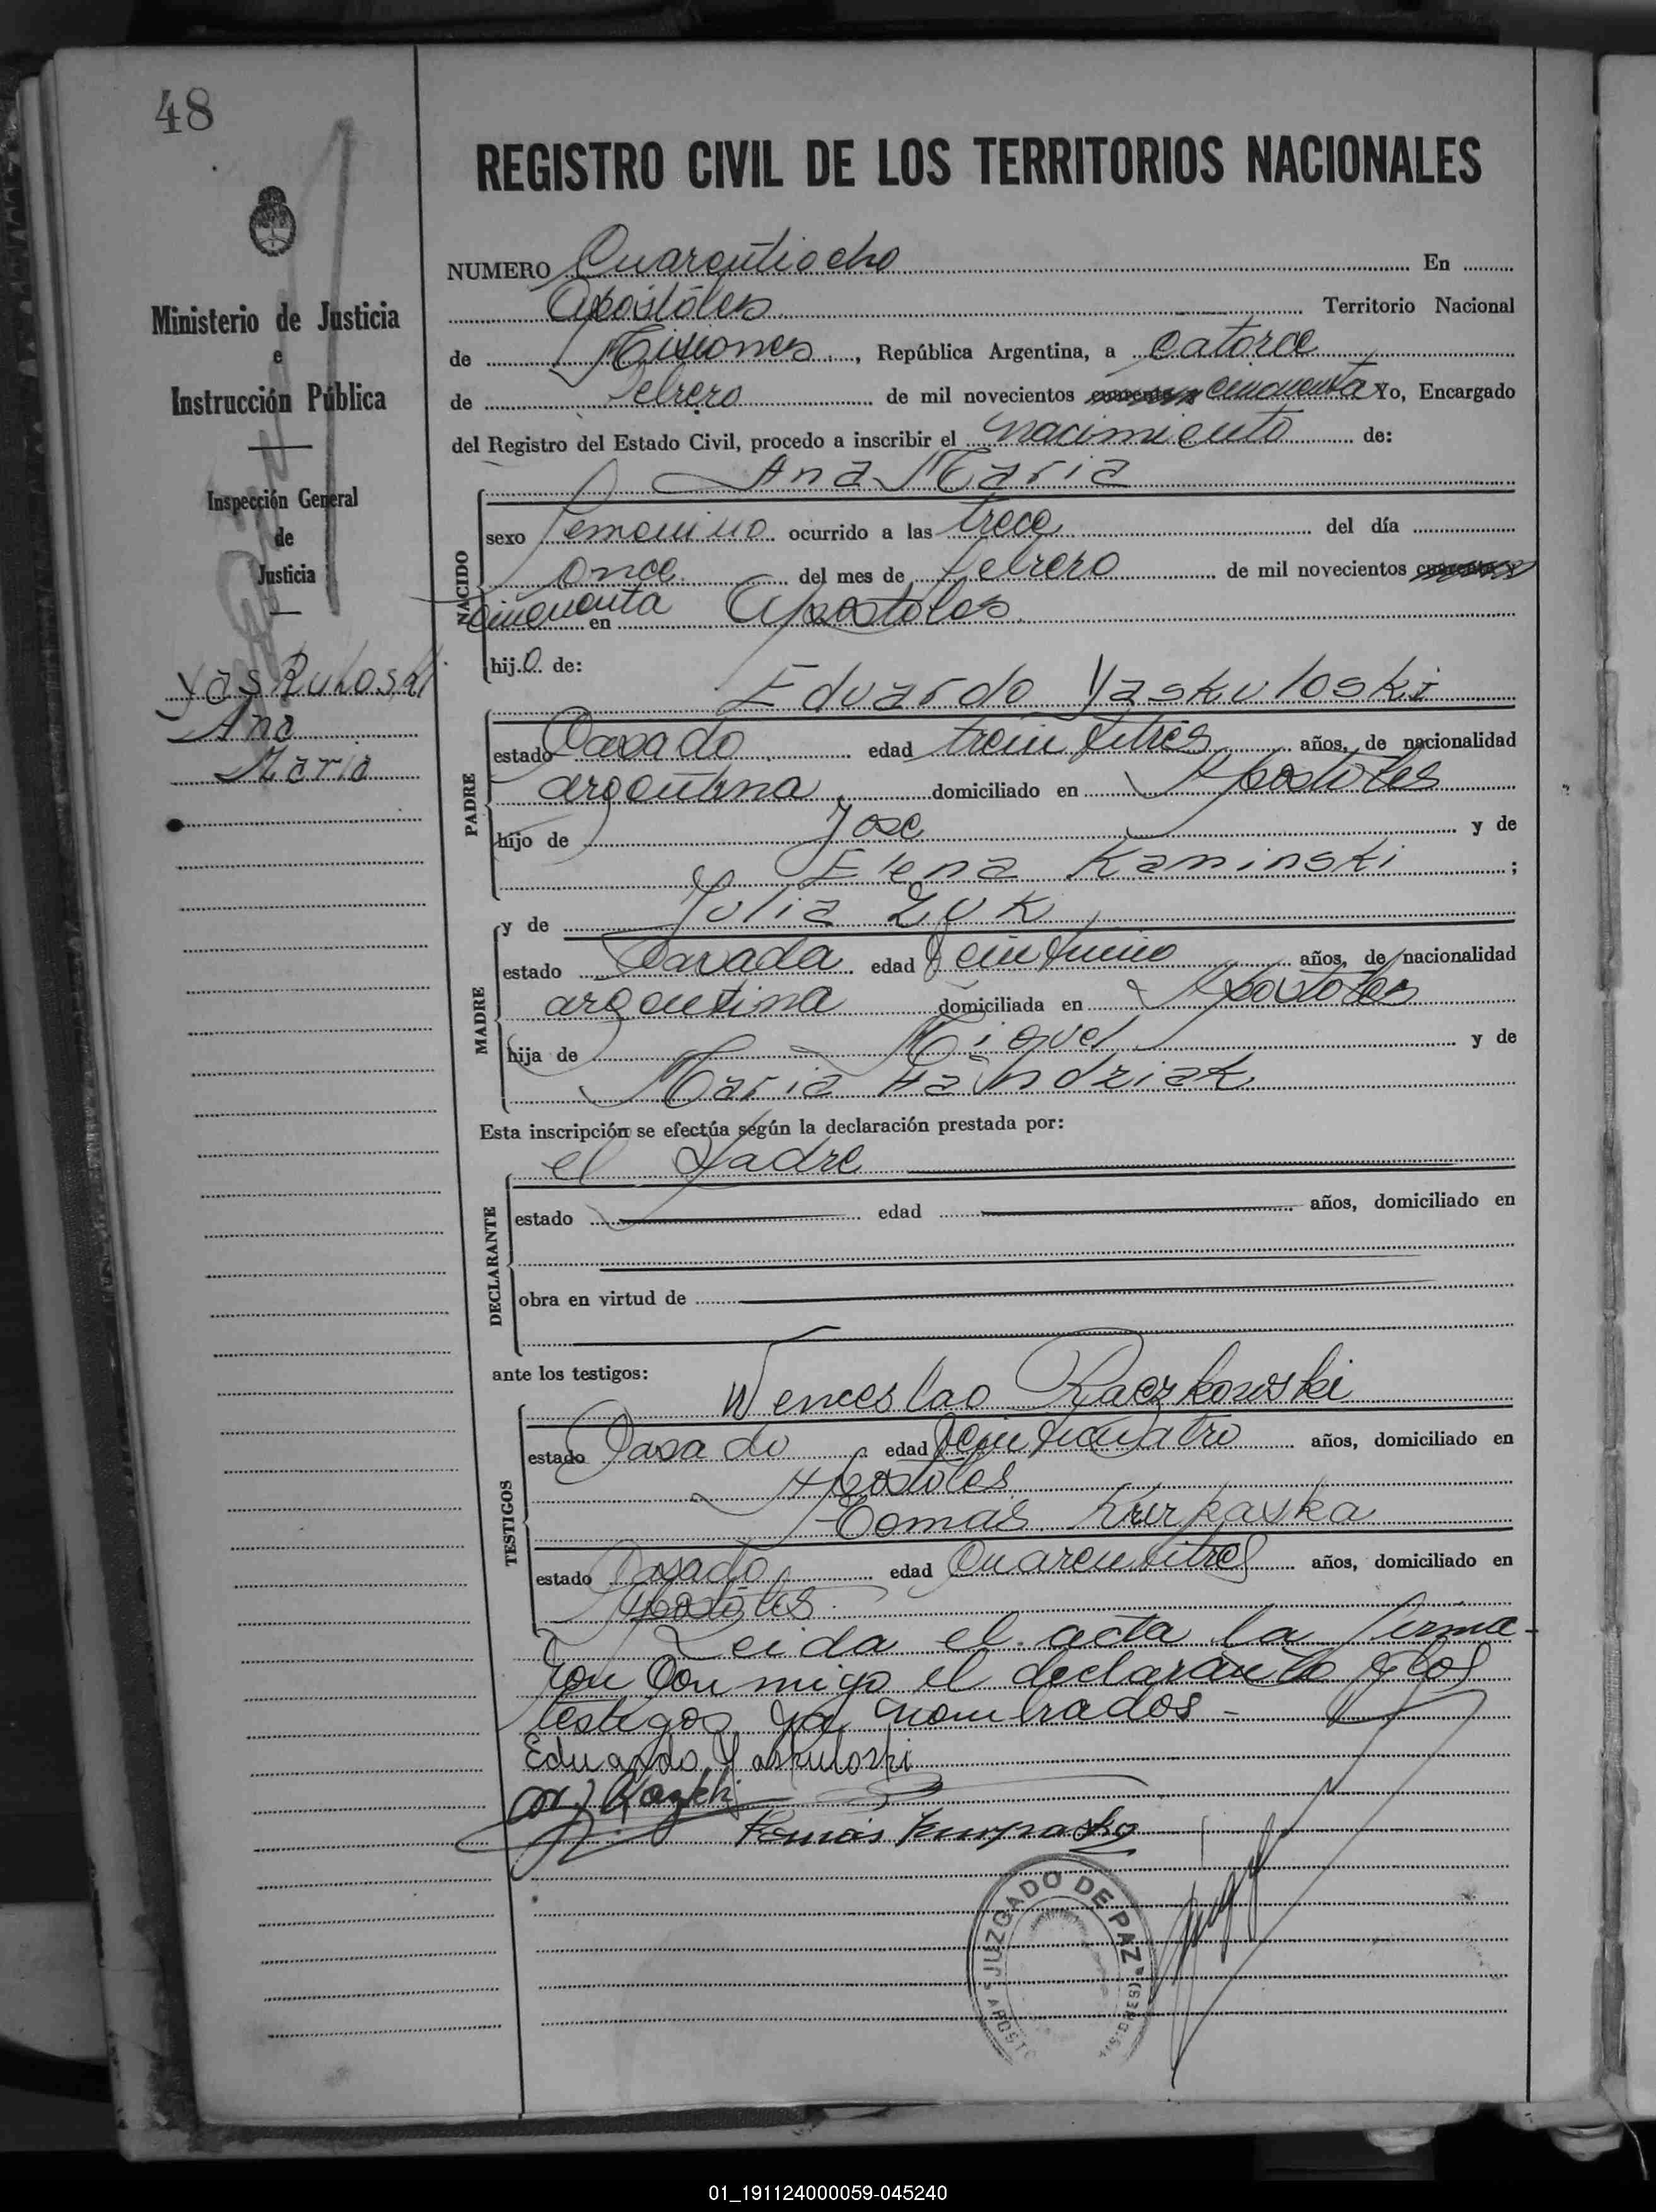 48
REGISTRO CIVIL DE LOS TERRITORIOS NACIONALES
Ministerio de Justicia
e
Instrucción Pública
Inspección General
de
Justicia
Yaskuloski
Ana
Maria
NUMERO Cuarentiocho En
Apóstoles Territorio Nacional
de Misiones, República Argentina, a catorce
de Febrero de mil novecientos cincuenta Yo, Encargado
del Registro del Estado Civil, procedo a inscribir el nacimiento de:
Ana Maria
NACIDO
sexo femenino ocurrido a las trece del día
once del mes de febrero de mil novecientos
cincuenta en Apostoles
hijo de:
Eduardo Yaskuloski
PADRE
estado Casado edad treintitres años, de nacionalidad
argentina domiciliado en Apostoles
hijo de Jose y de
Elena Kaminski ;
y de Julia Zuk
MADRE
estado Casada edad Veintiuno años, de nacionalidad
argentina domiciliada en Apostoles
hija de Miguel y de
Maria
Esta inscripción se efectúa según la declaración prestada por:
el Padre
DECLARANTE
estado edad años, domiciliado en
obra en virtud de
ante los testigos:
Wenceslao Raczkowski
TESTIGOS
estado Casado edad Veinticuatro años, domiciliado en
Apostoles
Tomás Kurpaska
estado Casado edad Cuarentitres años, domiciliado en
Apostoles
Leida el acta la firma-
ron conmigo el declarante y los
testigos ya nombrados -
Eduardo Yaskuloski
Tomás Kurpaska
JUZGADO DE PAZ
01_191124000059-045240